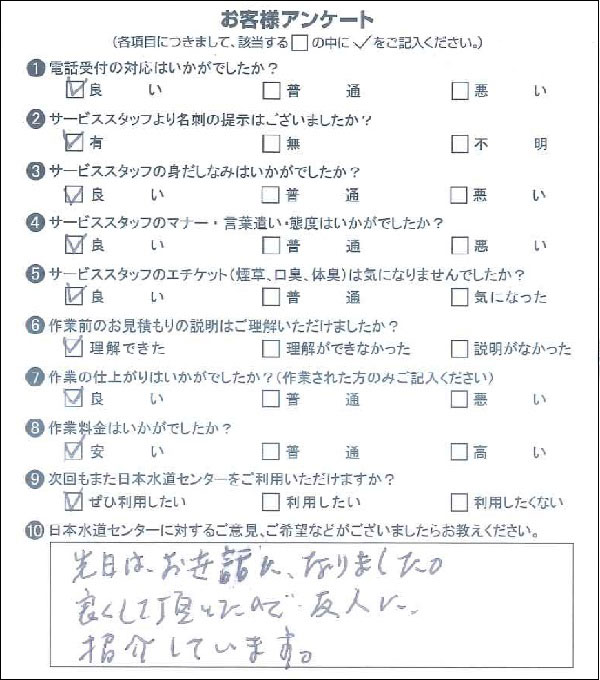 お客様アンケート
(各項目につきまして、該当する□の中に✓をご記入ください。)
❶電話受付の対応はいかがでしたか？
☑良い □普通 □悪い
❷サービススタッフより名刺の提示はございましたか？
☑有 □無 □不明
❸サービススタッフの身だしなみはいかがでしたか？
☑良い □普通 □悪い
❹サービススタッフのマナー・言葉遣い・態度はいかがでしたか？
☑良い □普通 □悪い
❺サービススタッフのエチケット(煙草、口臭、体臭)は気になりませんでしたか？
☑良い □普通 □気になった
❻作業前のお見積もりの説明はご理解いただけましたか？
☑理解できた □理解ができなかった □説明がなかった
❼作業の仕上がりはいかがでしたか？(作業された方のみご記入ください)
☑良い □普通 □悪い
❽作業料金はいかがでしたか？
☑安い □普通 □高い
❾次回もまた日本水道センターをご利用いただけますか？
☑ぜひ利用したい □利用したい □利用したくない
❿日本水道センターに対するご意見、ご希望などがございましたらお教えください。
先日は、お世話に、なりました。
良くして頂いたので 友人に、
紹介しています。